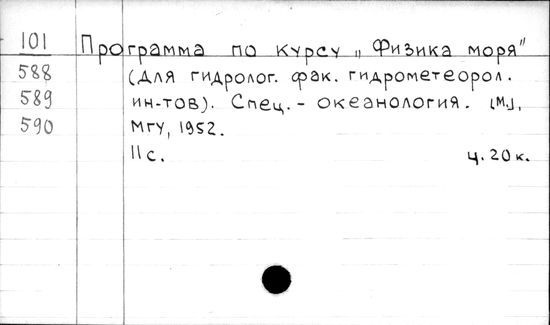 101 Программа по курсу „Физика моря"
588 (Для гидролог. фак. гидрометеорол.
589 ин-тов). Спец. - океанология. [М.],
590 МГУ, 1952.
11 с. ц. 20 к.